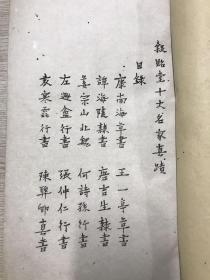 貽堂十大名家真蹟
目錄
康南海草書 王一亭草書
譚海陵隸書 唐吉生隸書
姜宗山北魏 何詩孫行書
左盦行書 張仲仁行書
袁寒雲行書 陳聯卿真書